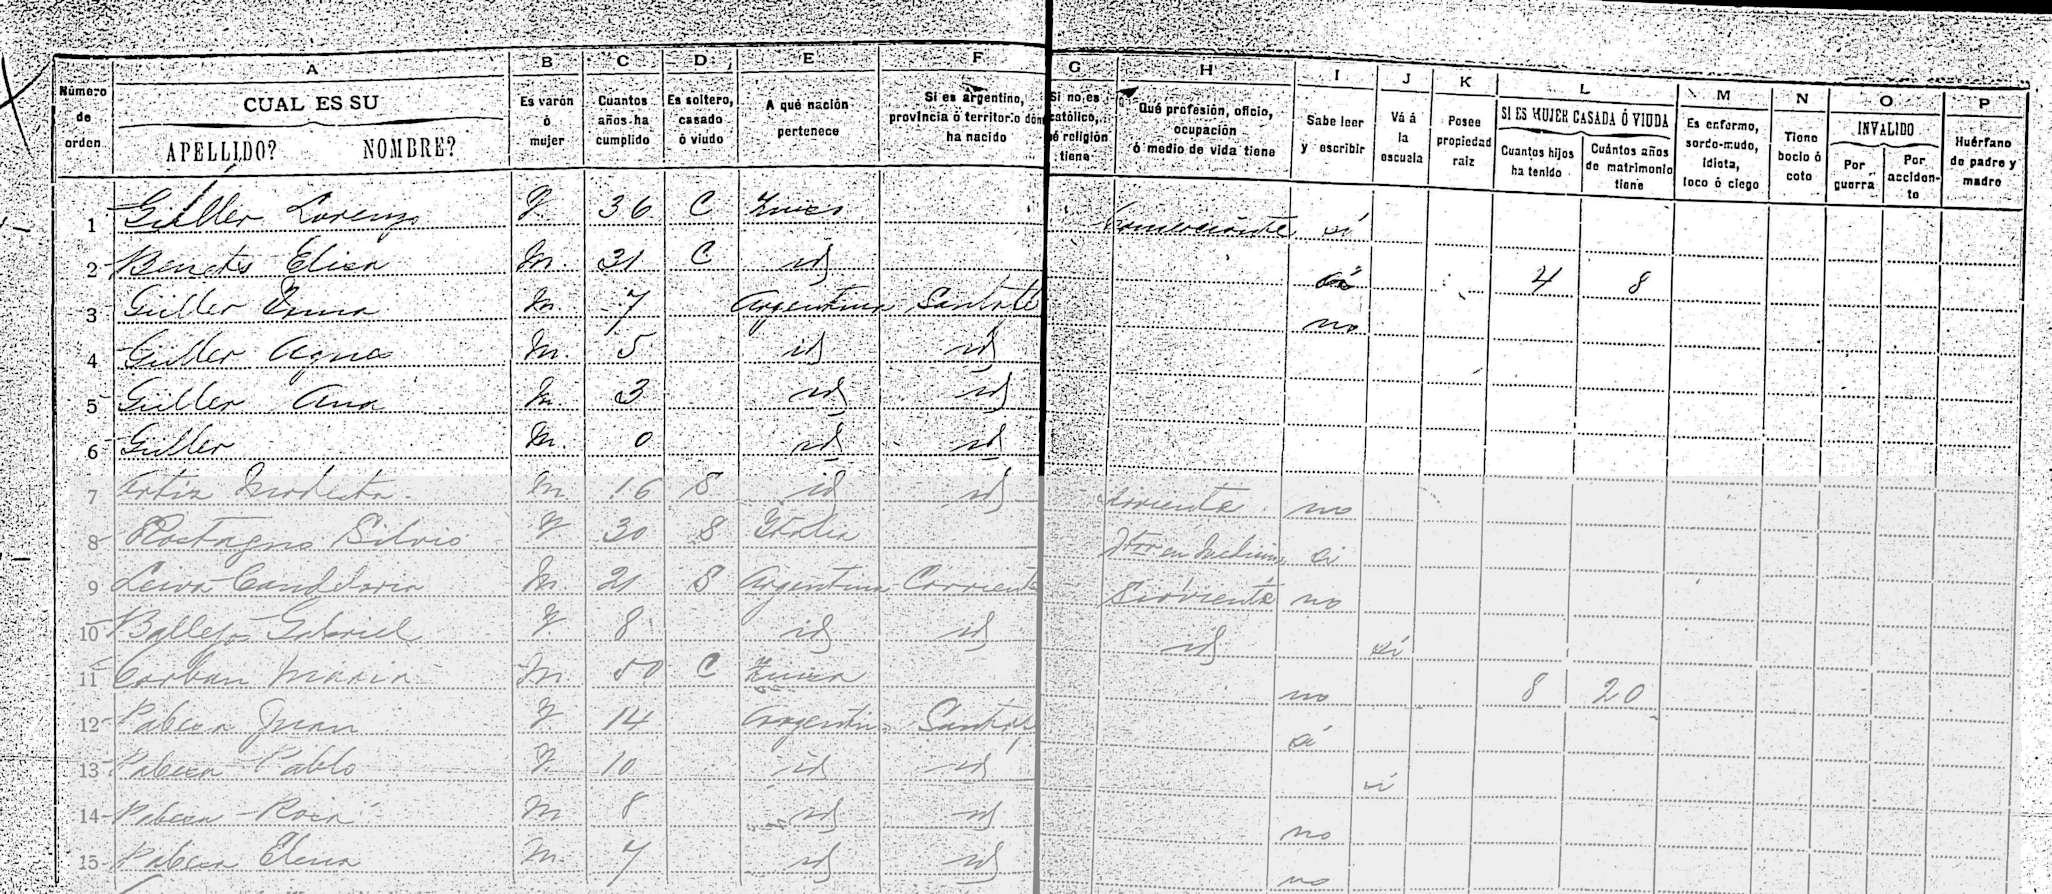 A B C D E F G H I J K L M N O P
Número de orden
CUAL ES SU
APELLIDO? NOMBRE?
Es varón ó mujer
Cuantos años ha cumplido
Es soltero, casado ó viudo
A qué nación pertenece
Si es argentino, provincia ó territorio dón ha nacido
Si no es católico, é religión tiene
Qué profesión, oficio, ocupación ó medio de vida tiene
Sabe leer y escribir
Vá á la escuela
Posee propiedad raiz
SI ES MUJER CASADA Ó VIUDA
Cuantos hijos ha tenido
Cuántos años de matrimonio tiene
Es enfermo, sordo-mudo, idiota, loco ó ciego
Tiene bocio ó coto
INVALIDO
Por guerra
Por acciden-te
Huérfano de padre y madre
1 Güller Lorenzo V. 36 C Comerciante si
2 Elisa M. 31 C id si 4 8
3 Güller Emma M. 7 Argentina Santa Fé no
4 Güller Agnes M. 5 id id
5 Güller Ana M. 3 id id
6 Güller M. 0 id id
7 Modesta M. 16 S id id sirvienta no
8 Rostagno Silvio V. 30 S Italia si
9 Leiva Candelaria M. 21 S Argentina Corrientes Sirvienta no
10 Ballejos Gabriel V. 8 id id id si
11 Corban Maria M. 50 C Suiza no 8 20
12 Juan V. 14 Argentina Santa Fé si
13 Pablo V. 10 id id si
14 Rosa M. 8 id id no
15 Elena M. 7 id id no